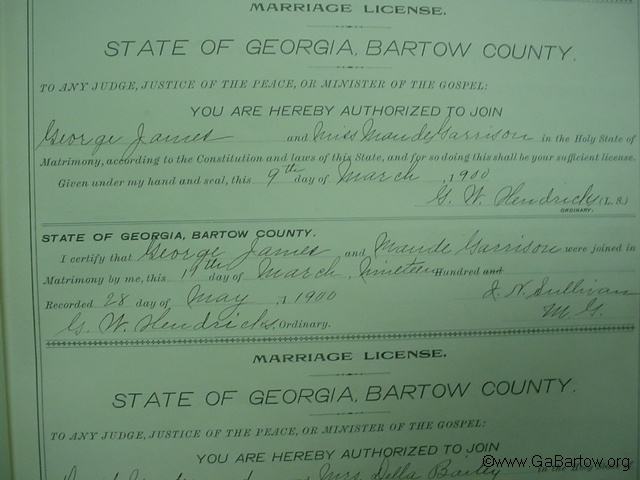 MARRIAGE LICENSE.
STATE OF GEORGIA, BARTOW COUNTY.
TO ANY JUDGE, JUSTICE OF THE PEACE, OR MINISTER OF THE GOSPEL:
YOU ARE HEREBY AUTHORIZED TO JOIN
George James and Miss Maude Garrison in the Holy State of
Matrimony, according to the Constitution and laws of this State, and for so doing this shall be your sufficient license.
Given under my hand and seal, this 9th day of March, 1900
G. W. Hendricks (L. S.)
ORDINARY.
STATE OF GEORGIA, BARTOW COUNTY.
I certify that George James and Maude Garrison were joined in
Matrimony by me, this 11th day of March, Nineteen Hundred and
Recorded 28 day of May, 1900 J. N. Sullivan
G. W. Hendricks, Ordinary. M G.
MARRIAGE LICENSE.
STATE OF GEORGIA, BARTOW COUNTY.
TO ANY JUDGE, JUSTICE OF THE PEACE, OR MINISTER OF THE GOSPEL:
YOU ARE HEREBY AUTHORIZED TO JOIN
Della Bailey in the Holy
©www.GaBartow.org